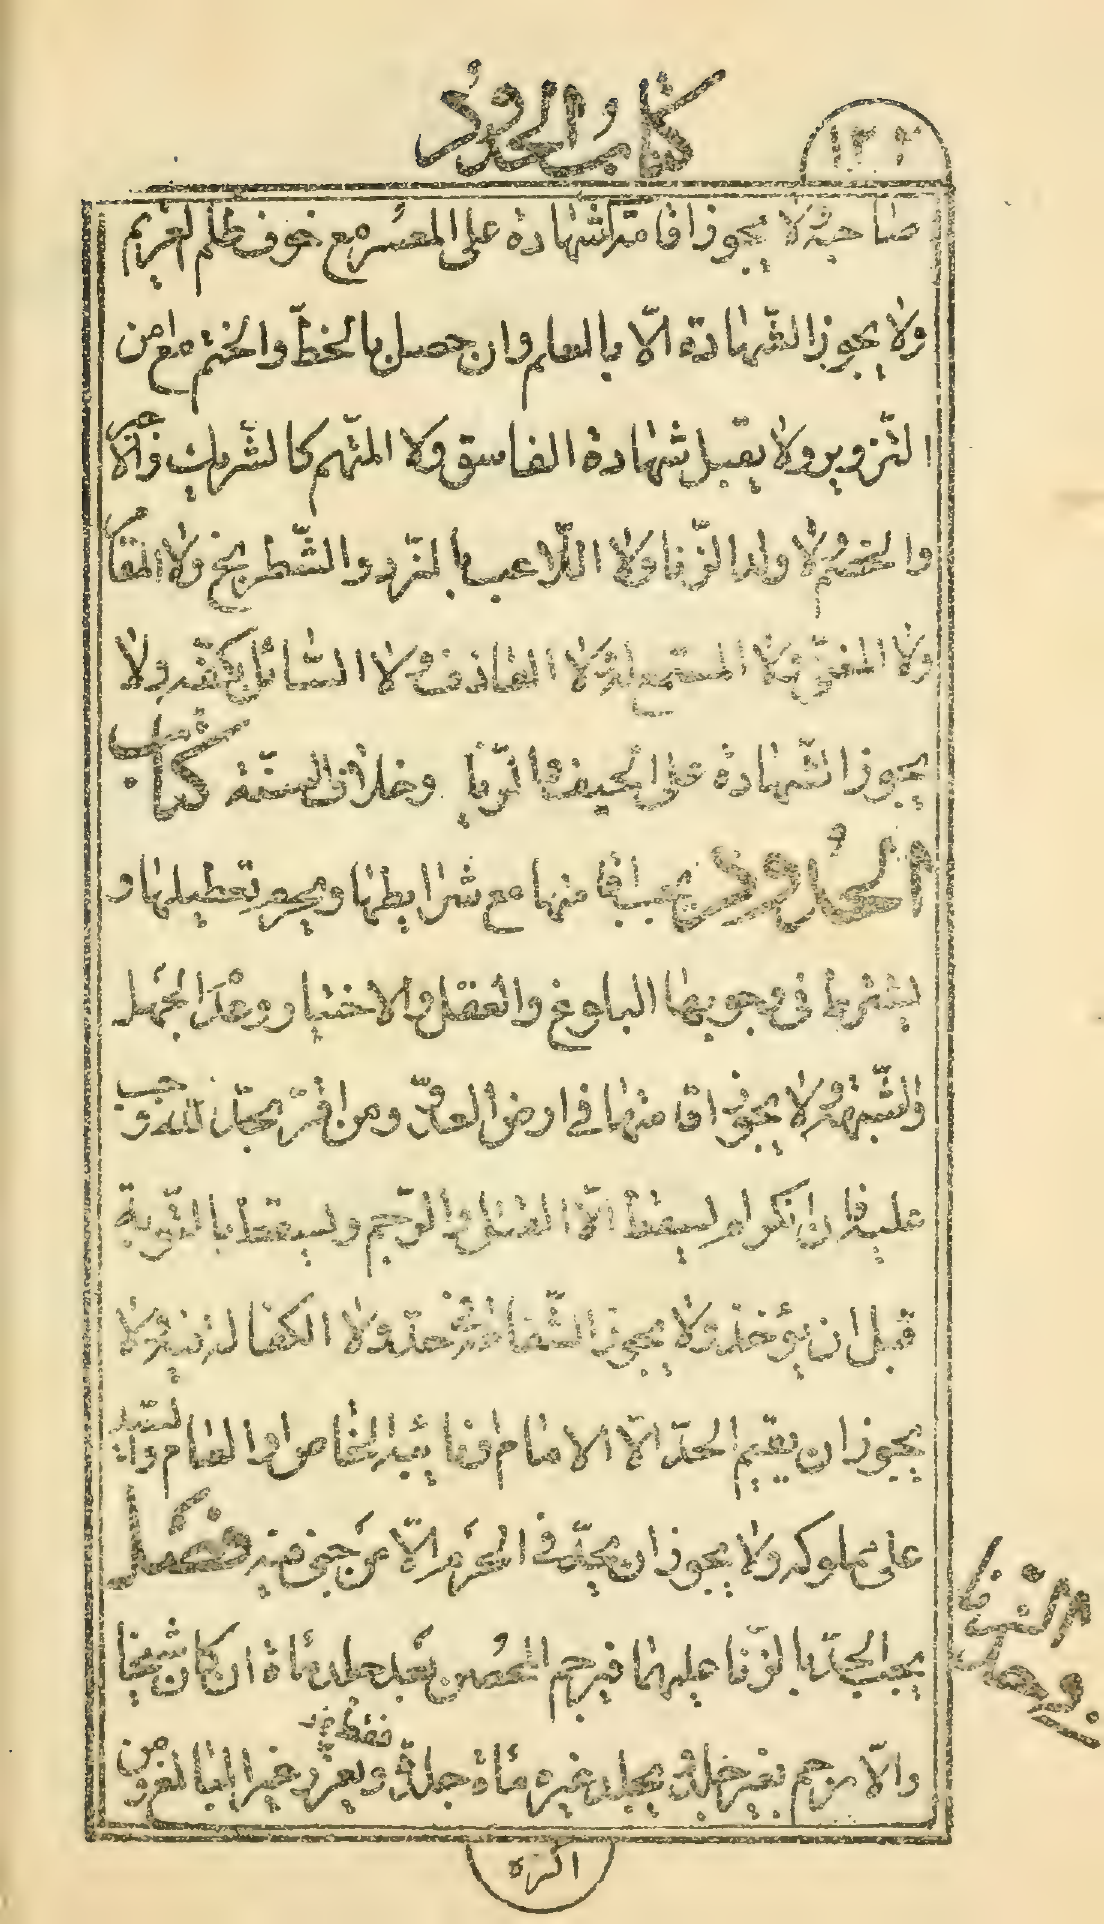 كتاب الحدود
١٣٢
صاحبه ولا يجوز اقامة الشهادة على المعسر مع خوف ظلم الغريم
ولا يجوز الشهادة الّا بالعلم وان حصل بالخطّ والختم مع امن
التزوير ولا يقبل شهادة الفاسق ولا المتّهم كالشريك
والخصم ولا ولد الزّنا ولا اللّاعب بالنّرد والشّطرنج ولا
ولا المغنّى ولا المستمع له ولا القاذف ولا السّائل بكفّه ولا
يجوز الشّهادة على الحيف والرّبا وخلاف السنّة كتاب
الحدود يجب اقامتها مع شرايطها ويحرم تعطيلها و
يشترط فى وجوبها البلوغ والعقل والاختيار وعدم الجهل
والشّبهة ولا يجوز اقامتها فى ارض العدوّ ومن اقرّ بحدّ لله وجب
عليه فان انكر لم يسقط الّا القتل والرّجم ويسقط بالتّوبة
قبل ان يؤخذ ولا يجوز الشّفاعة فى حدّ ولا الكفالة فيه ولا
يجوز ان يقيم الحدّ الّا الامام او نائبه الخاص او العام والسّيّد
على مملوكه ولا يجوز ان يحدّ فى الحرم الّا من جنى فيه فصل
يجب الحدّ بالزّنا عليهما فيرجم المحصن بعد جلد مأة ان كان شيخا
والّا رجم بغير جلد ويجلد غيره مأة جلدة ويعزّر غير البالغ ومن
فقط
الزنا
اكره